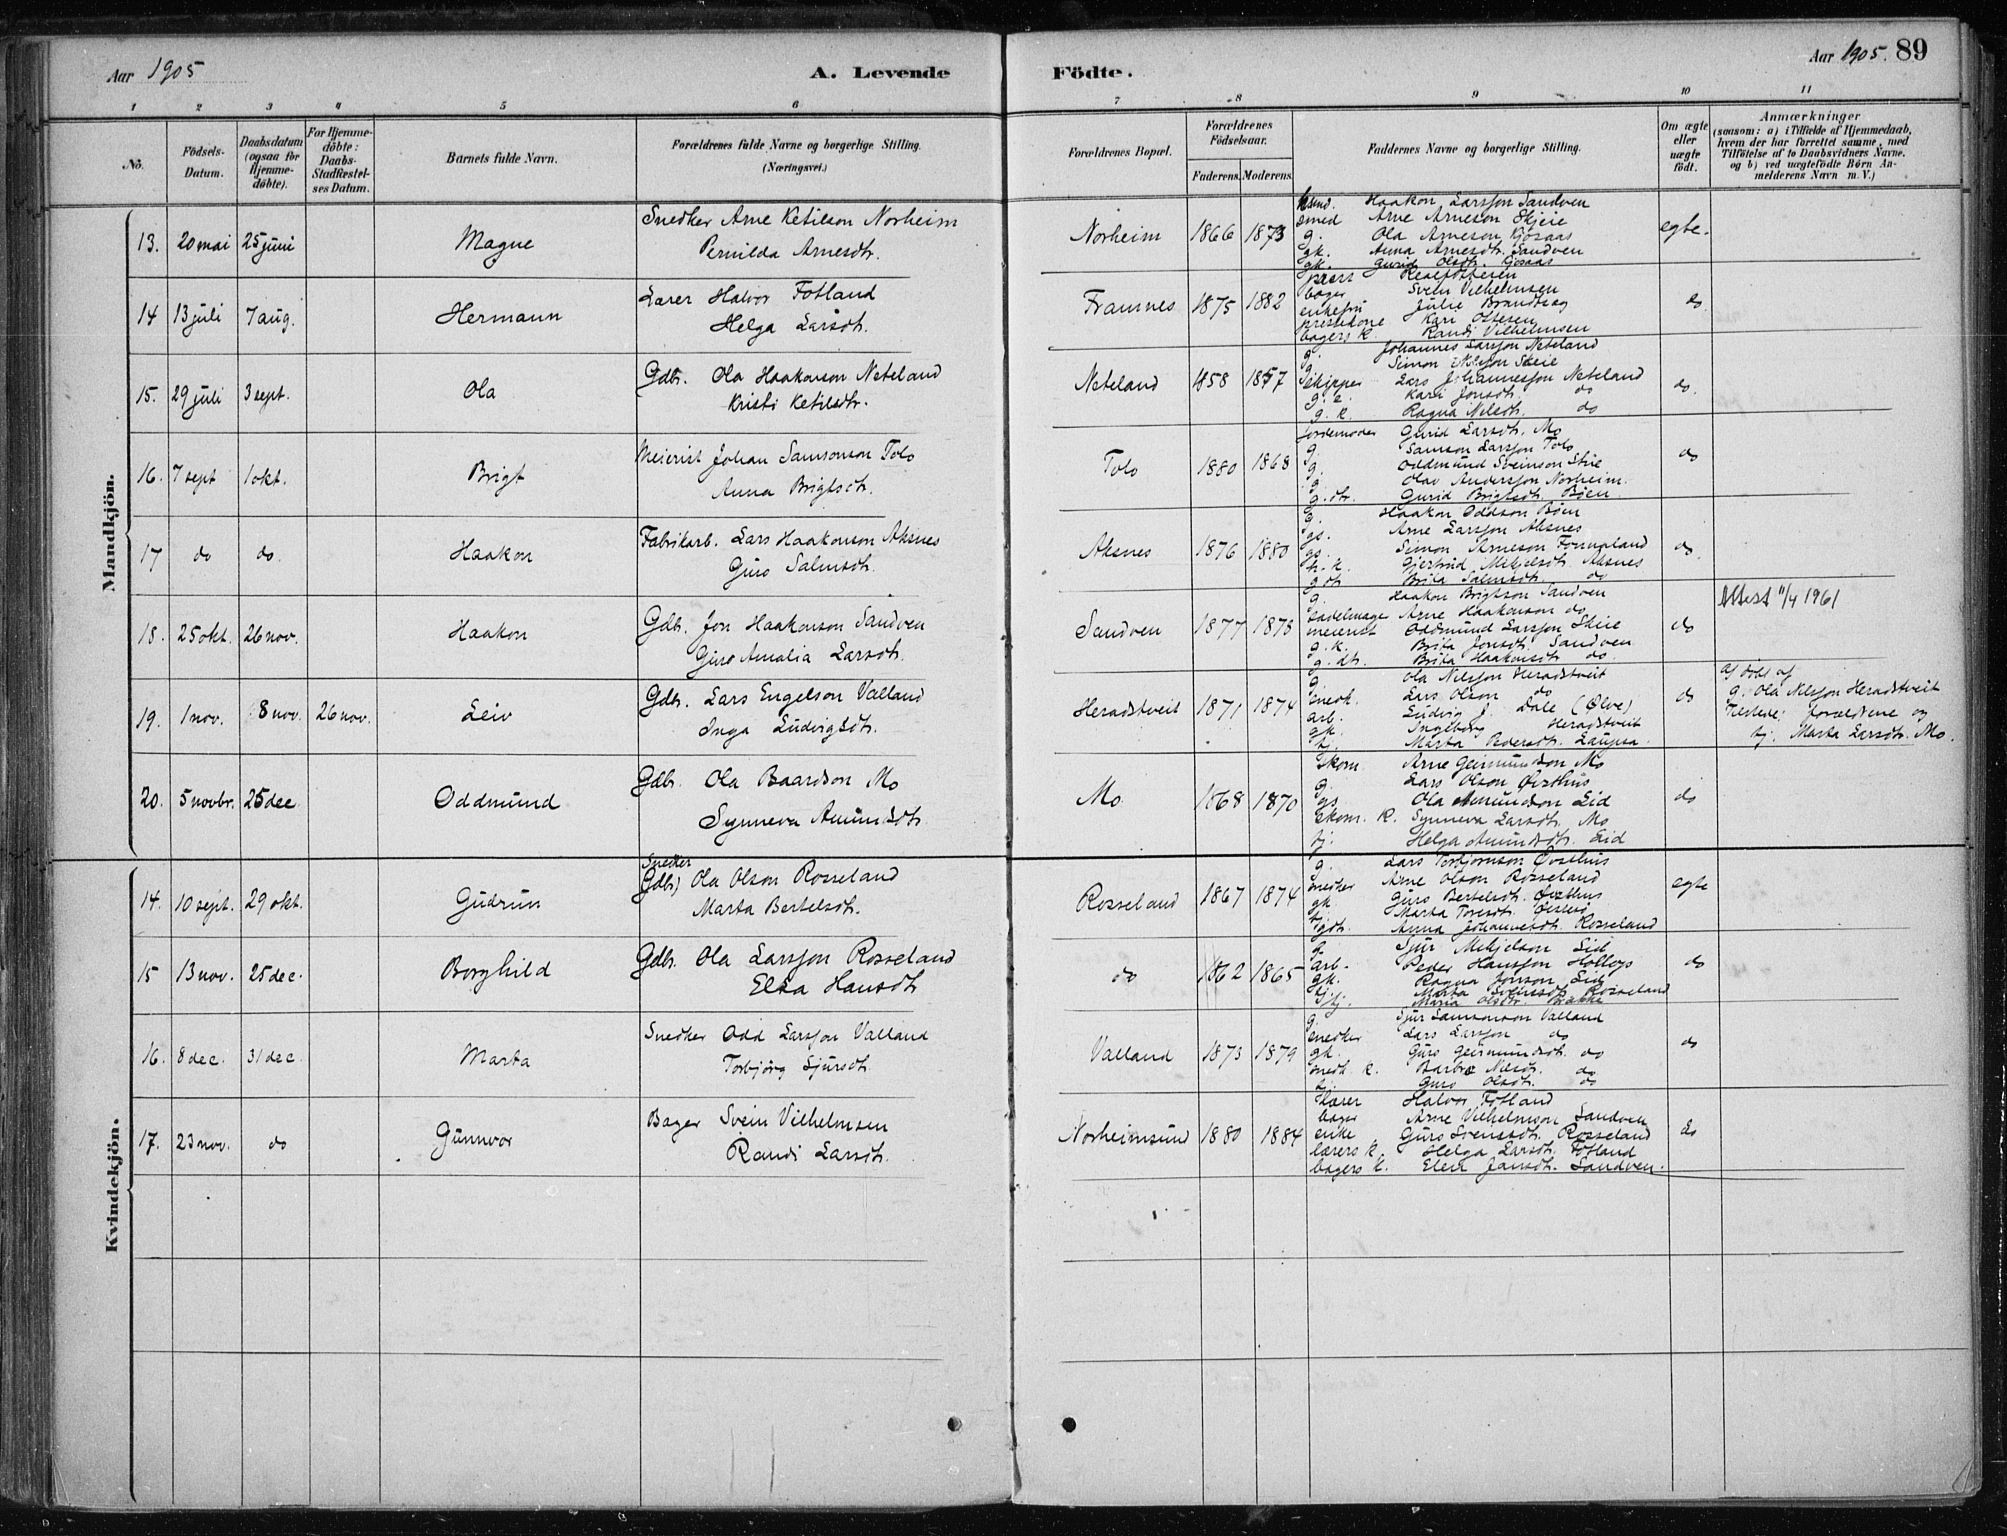 Aar 1905
A. Levende Födte.
Aar 1905. 89
1 2 3 4 5 6 7 8 9 10 11
No.
Födsels-Datum.
Daabsdatum (ogsaa for Hjemmedöbte).
For Hjemmedöbte: Daabs-Stadfæstelses Datum.
Barnets fulde Navn.
Forældrenes fulde Navne og borgerlige Stilling.
(Næringsvei.)
Forældrenes Bopæl.
Forældrenes Födselsaar.
Faderens. Moderens.
Faddernes Navne og borgerlige Stilling.
Om ægte eller uægte födt.
Anmærkninger
(saasom: a) i Tilfælde af Hjemmedaab, hvem der har forrettet samme, med Tilföielse af to Daabsvidners Navne, og b) ved uægtefödte Börn Anmelderens Navn m. V.)
Mandkjön.
13. 20 mai 25 juni Magne
Snedker Arne Ketilson Norheim
Pernilda Arnesdtr.
Norheim 1866 1873
Haakon Larsson Sandven
smed Arne Arneson Skjeie
g. Ola Arneson Kjosaas
gk. Anna Arnesdtr. Sandven
gk. Gurid Olsdtr. Kjosaas
egte.
14 13 juli 7 aug. Hermann
Lærer Halvor Fotland
Helga Larsdtr.
Framnes 1875 1882
bager Svein Vilhelmsen
enkefru Julie Brandtzæg
Kari Ottesen
bagers k. Randi Vilhelmsen
do
15. 29 juli 3 sept. Ola
Gdbr. Ola Haakonson Neteland
Kristi Ketilsdtr.
Neteland 1858 1857
g. Johannes Larsson Neteland
g. Simon Skeie
Skipper Lars Johannesson Neteland
g. k. Kari Jonsdtr. do
g. k. Ragna Nilsdtr. do
do.
16. 7 sept 1 okt. Brigt
Meierist Johan Samsonson Tolo
Anna Brigtsdtr.
Tolo 1880 1868
jordemoder Gurid Larsdtr. Mo
g. Samson Larsson Tolo
g. Oddmund Sveinson Skeie
g. Olav Andersson Norheim.
g. dtr. Gurid Brigtsdtr. Bøen
do
17 do do. Haakon
Fabrikarb. Lars Haakonson Aksnes
Guro Salmsdtr.
Aksnes 1876 1880
g. Haakon Oddson Bøen
gs. Arne Larsson Aksnes
gs. Simon Arneson
h. k. Gjertrud Mikjelsdtr. Aksnes
g dtr. Brita Salmsdtr. do
do.
18. 25 okt. 26 nov. Haakon
Gdbr. Jon Haakonson Sandven
Guro Amalia Larsdtr.
Sandven 1877 1878
g. Haakon Brigtson Sandven
Sadelmager Arne Haakonson do
meierist Oddmund Larsson Skeie
g. k. Brita Jonsdtr. Sandven
g. dtr. Brita Haakonsdtr. do.
do
Attest 11/4 1961
19. 1 nov. 8 nov. 26 nov. Leiv
Gdbr. Lars Engelson Valland
Inga Ludvigsdtr.
Heradstveit 1871 1874
g. Ola Nilsson Heradstveit
snedk. Lars Olson do
arb. Ludvig J. Dale (Ølve)
gk. Ingeborg Heradstveit
tj. Marta Pedersdtr. Laupsa
do
g. Ola Nilsson Heradstveit
Tilstede: forældrene og
tj. Marta Larsdtr. Mo.
20. 5 novbr. 25 dec Oddmund
Gdbr. Ola Baardson Mo
Synneva Amundsdtr.
Mo. 1868 1870
Skom. Arne Geirmundson Mo
g. Lars Olson Øvsthus
gs. Ola Amundson Eid
Skom. k. Synneva Larsdtr. Mo
tj. Helga Amundsdtr. Eid
do
Kvindekjön.
14. 10 sept. 29 okt. Gudrun
Snedker
(Gdbr) Ola Olson Rosseland
Marta Bertelsdtr.
Rosseland 1867 1874
g. Lars Torbjornson Øvsthus
snedker Arne Olson Rosseland
gk. Guro Bertelsdtr. Øvsthus
Marta Toresdtr.
Anna Johannesdtr. Rosseland
egte
15 13 nov. 25 dec. Borghild
Gdbr. Ola Larsson Rosseland
Elsa Hansdtr
do 1862 1865
g. Sjur Mikjelson Eid
arb. Peder Hansson
gk. Ragna Jonson Eid
tj. Marta Sveinsdtr. Rosseland
tj. Maria Olsdtr.
do
16. 8 dec. 31 dec. Marta
Snedker Odd Larsson Valland
Torbjörg Sjursdtr.
Valland 1873 1879
g. Sjur Samsonson Valland
snedker Lars Larsson do
gk. Guro Geirmundsdtr. do
snedk. k. Barbra Nilsdtr. do
tj. Guro Olsdtr. do
do
17. 23 nov. do Gunnvor
Bager Svein Vilhelmsen
Randi Larsdtr.
Norheimsund 1880 1884
Lærer Halvor Fotland
bager Arne Vilhelmson Sandven
enke Guro Svensdtr. Rosseland
lærers k. Helga Larsdtr. Fotland
bagers k. Elen Jansdtr. Sandven.
do